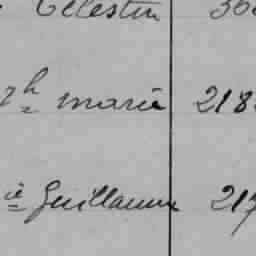 Célestin
h marie 218
ie Guillaume 217